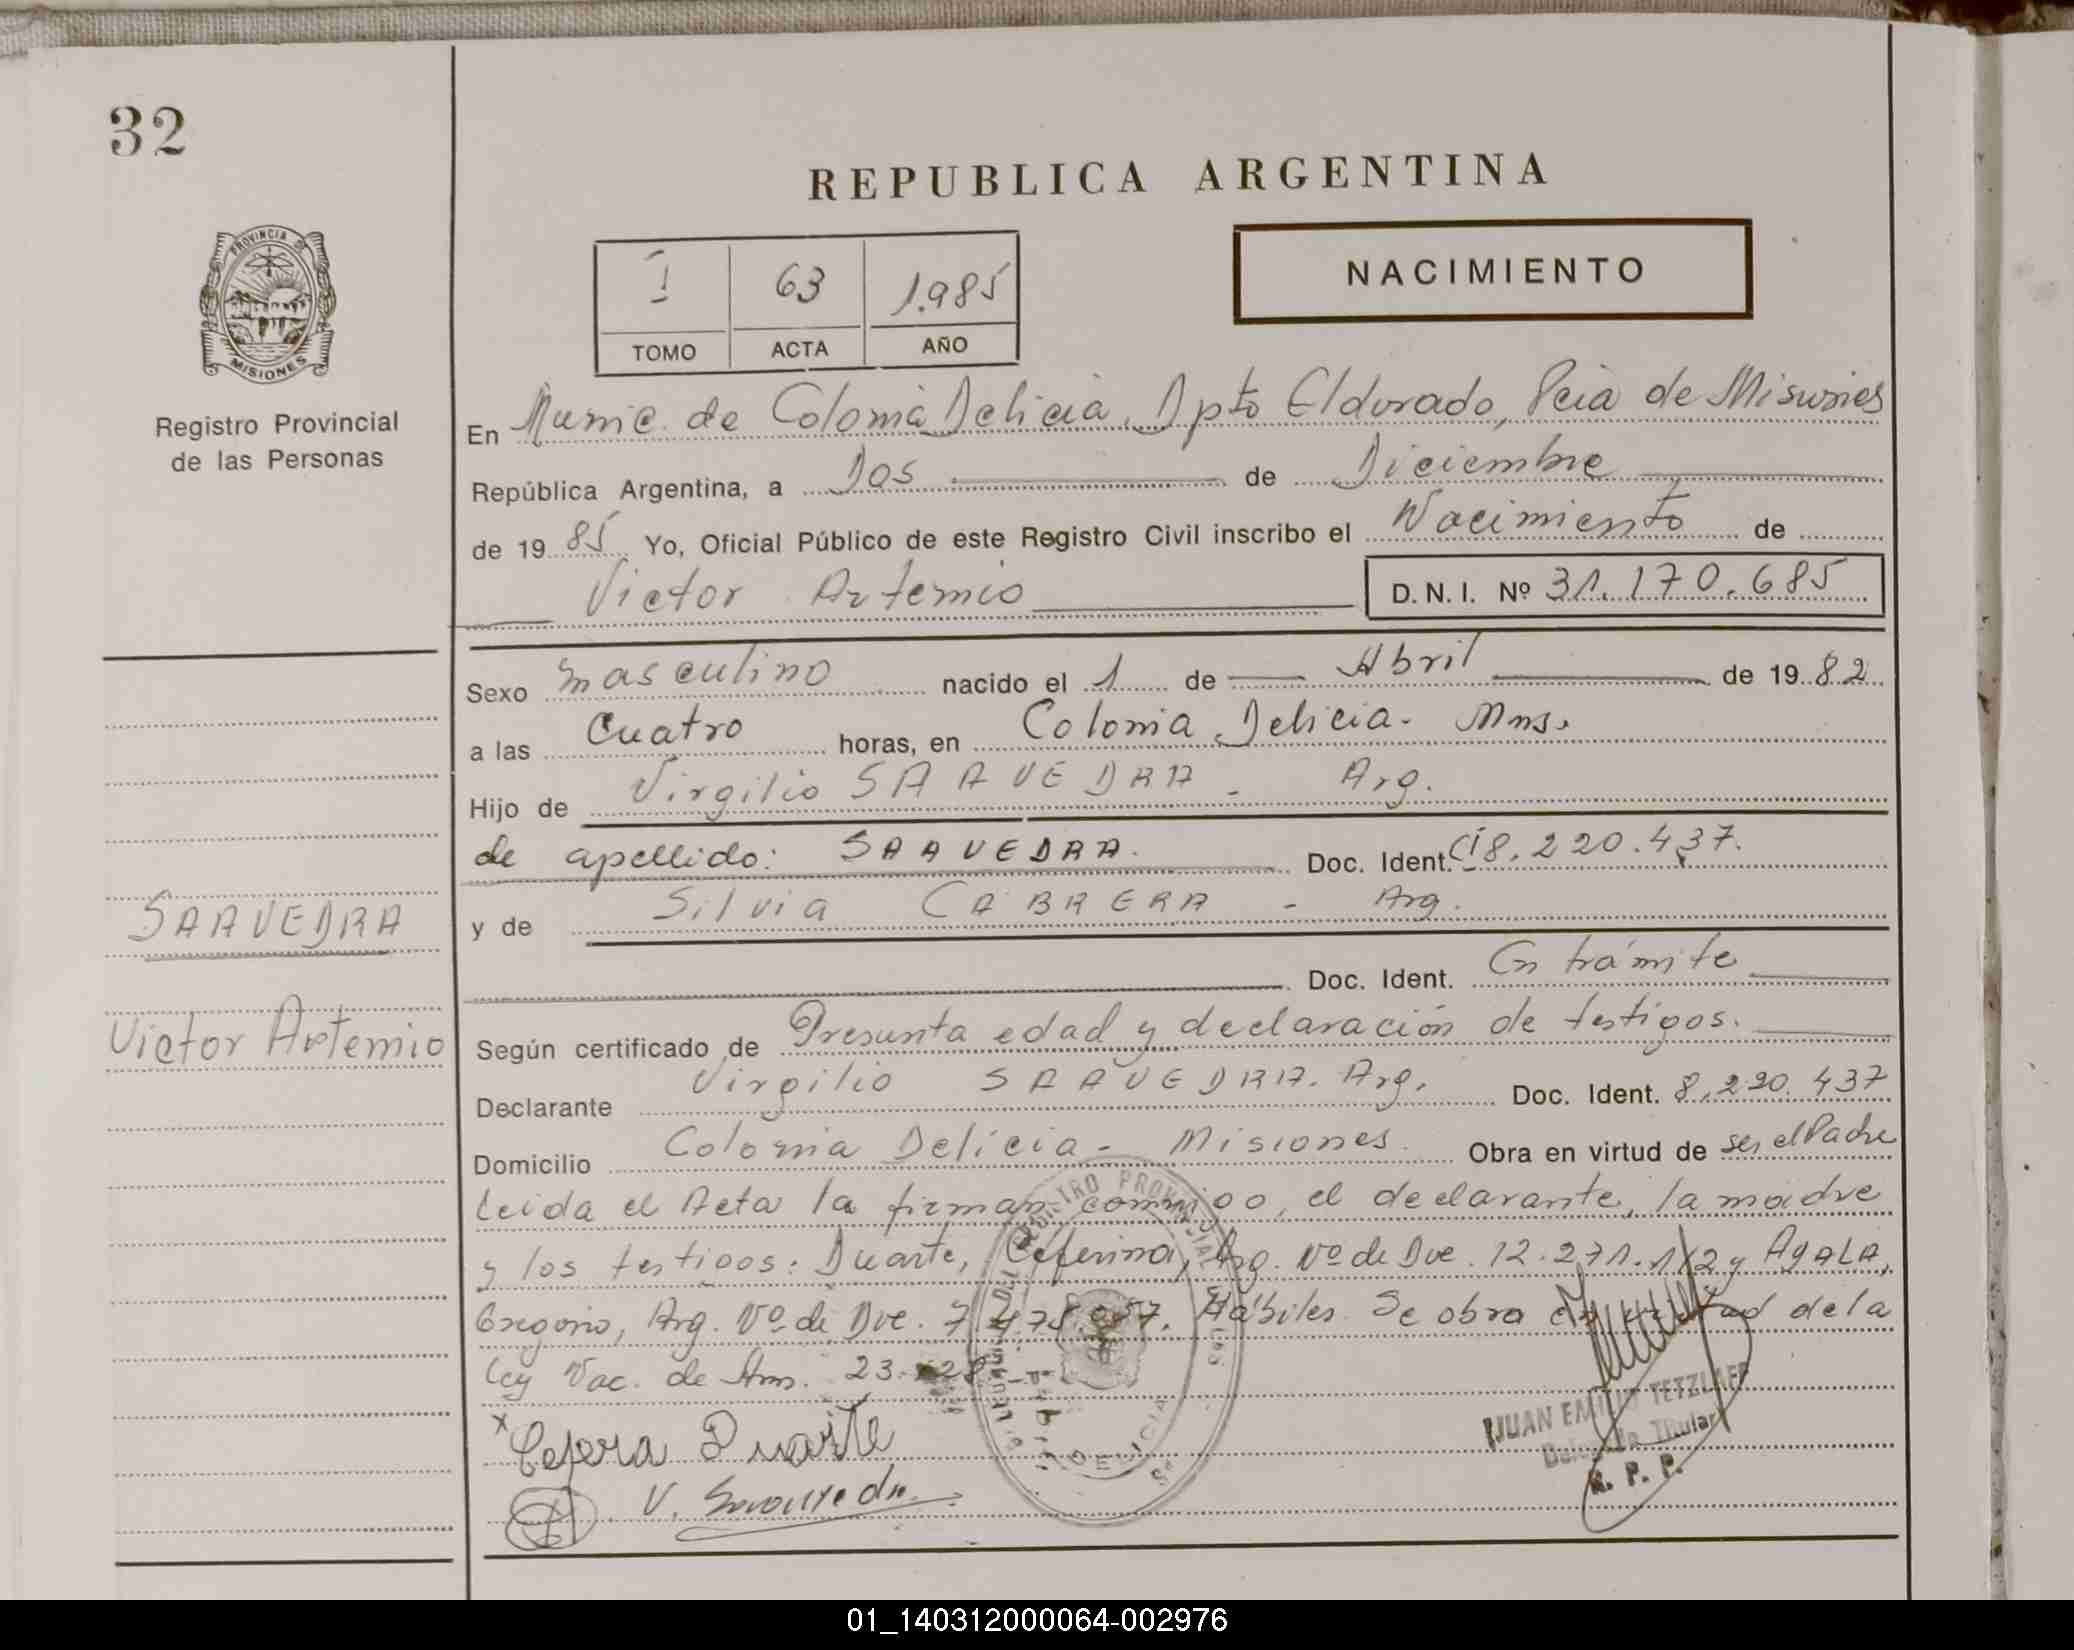 32
REPUBLICA ARGENTINA
PROVINCIA DE
MISIONES
Registro Provincial
de las Personas
I 63 1.985
TOMO ACTA AÑO
NACIMIENTO
En Munic. de Colonia Delicia, Dpto Eldorado, Pcia de Misiones
República Argentina, a Dos de Diciembre
de 1985 Yo, Oficial Público de este Registro Civil inscribo el Nacimiento de
Victor Artemio D.N.I. Nº 31.170.685
Sexo masculino nacido el 1 de Abril de 1982
a las Cuatro horas, en Colonia Delicia - Mns.
Hijo de Virgilio SAAVEDRA - Arg.
de apellido: SAAVEDRA. Doc. Ident. CI 8.220.437.
y de Silvia CABRERA - Arg.
Doc. Ident. En trámite
SAAVEDRA
Victor Artemio
Según certificado de Presunta edad y declaración de testigos.
Declarante Virgilio SAAVEDRA. Arg. Doc. Ident. 8.220.437
Domicilio Colonia Delicia - Misiones. Obra en virtud de ser el Padre
Leida el Acta la firman conmigo, el declarante, la madre
y los testigos: Duarte, Ceferina, Arg. Nº de Dve. 12.271.112 y AyALA,
Gregorio, Arg. Nº de Dve. Hábiles. Se obra en virtud de la
Ley Nac. de Am. 23.
Cefera Duarte
V. Saavedra
JUAN EMILIO TETZLAFF
Delegado Titular
R. P. P.
DELICIA
01_140312000064-002976